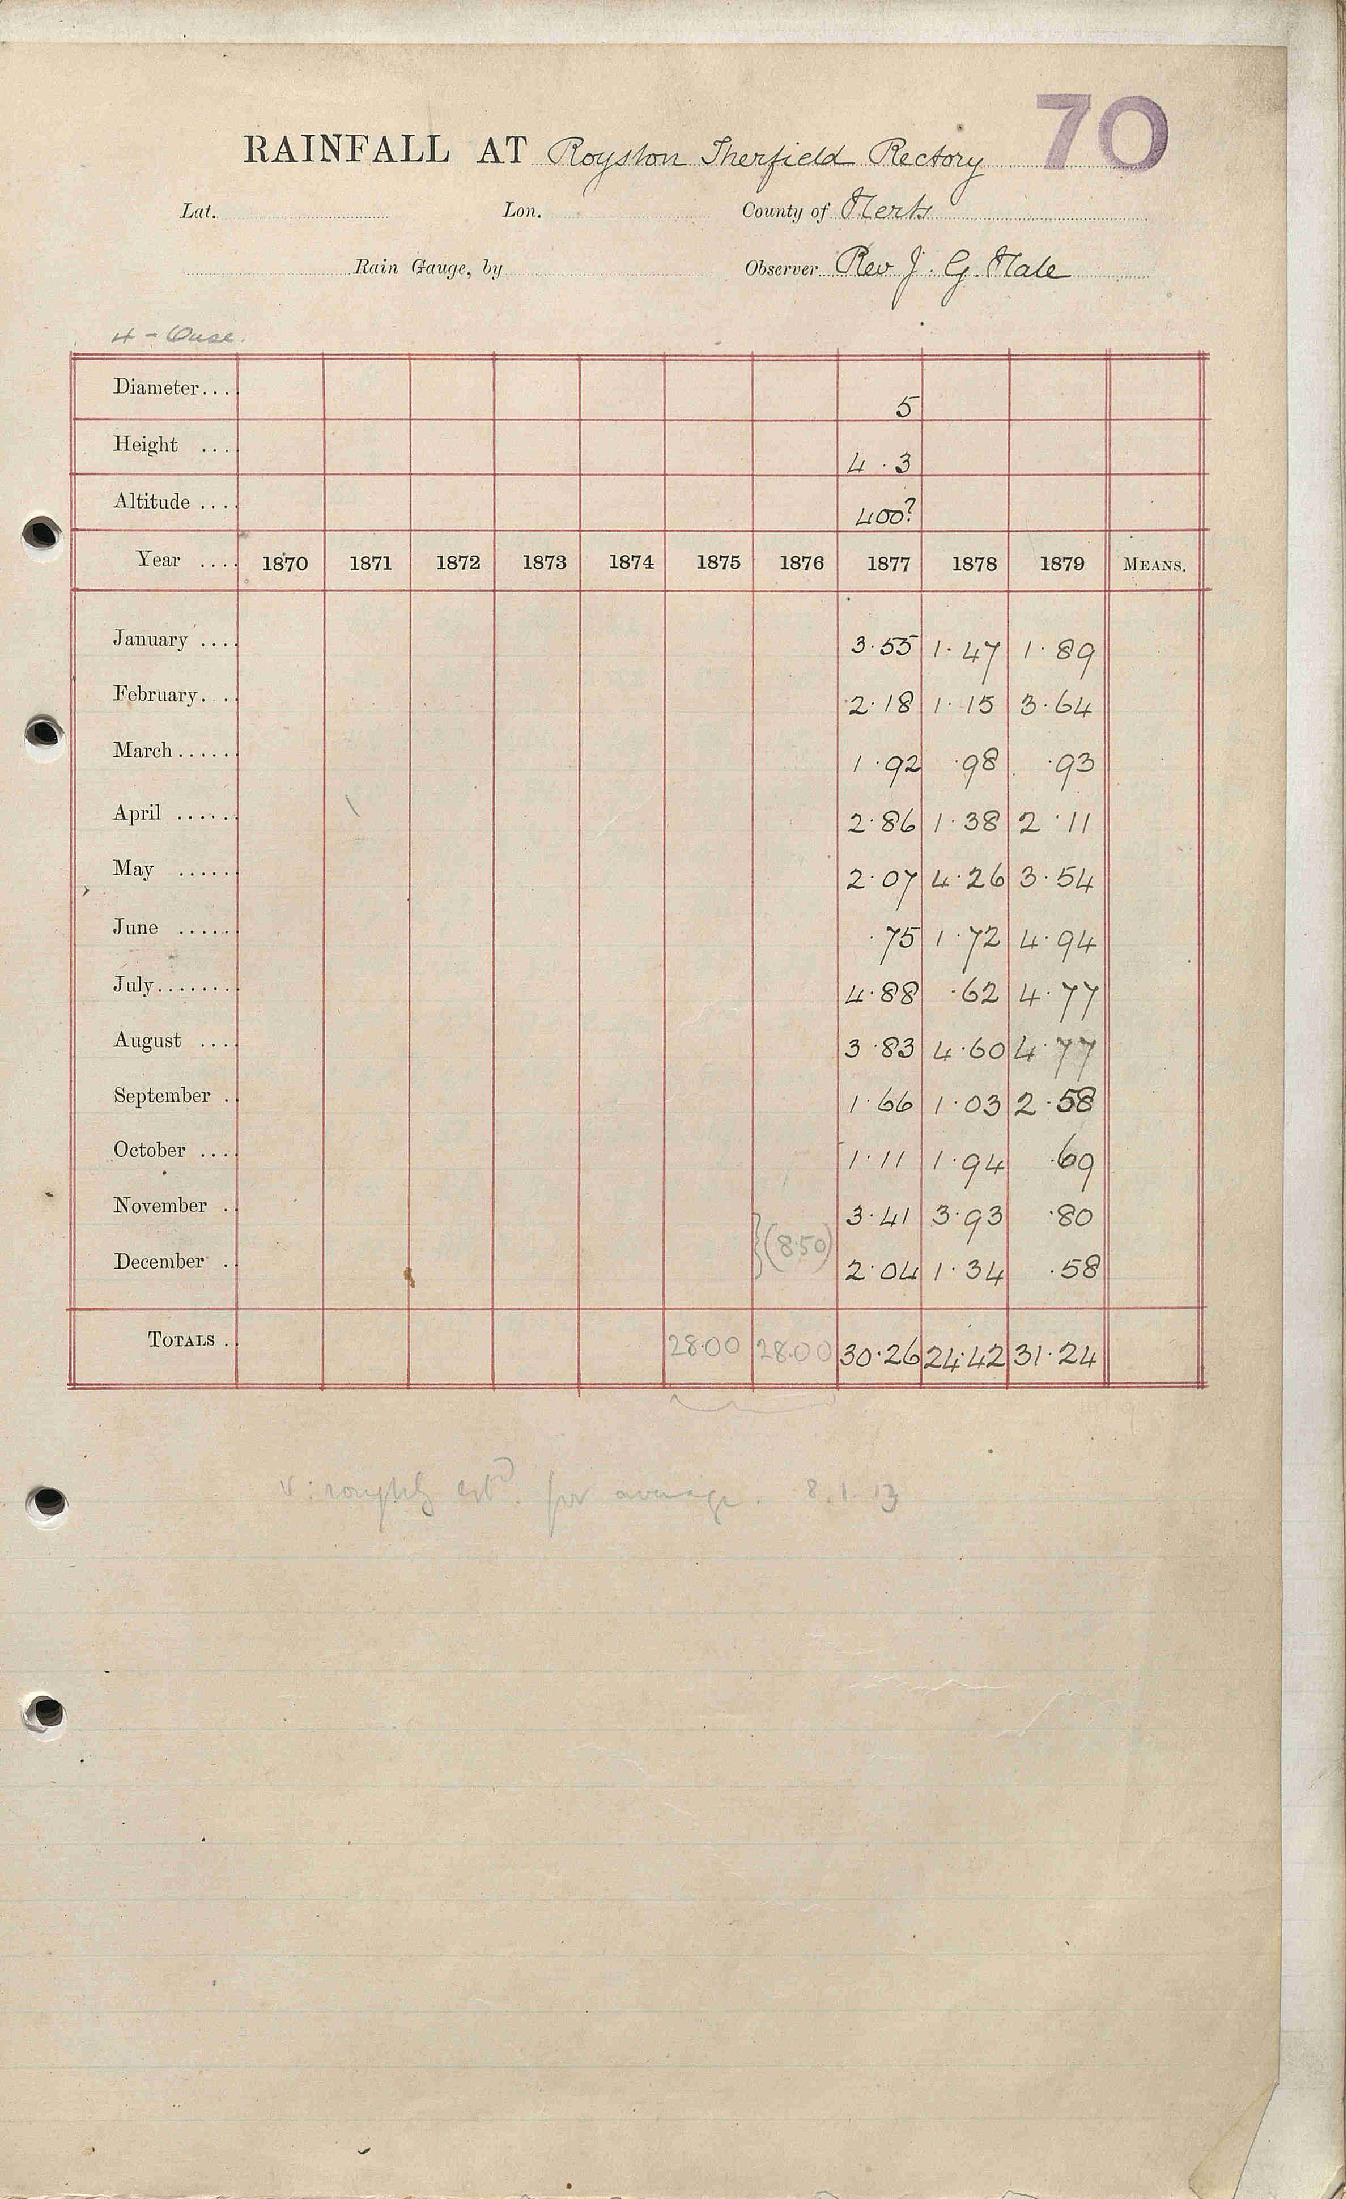 70
RAINFALL AT Royston Therfield Rectory
Lat. Lon. County of Herts
Rain Gauge, by Observer Rev J. G. Hale
4 - Ouse.
Diameter.... 5
Height .... 4.3
Altitude .... 400?
Year .... 1870 1871 1872 1873 1874 1875 1876 1877 1878 1879 MEANS.
January .... 3.55 1.47 1.89
February. .. 2.18 1.15 3.64
March...... 1.92 .98 .93
April ...... 2.86 1.38 2.11
May ...... 2.07 4.26 3.54
June ...... .75 1.72 4.94
July........ 4.88 .62 4.77
August .... 3.83 4.60 4.77
September .. 1.66 1.03 2.58
October .... 1.11 1.94 .69
November .. 3.41 3.93 .80
(8.50)
December .. 2.04 1.34 .58
TOTALS .. 28.00 28.00 30.26 24.42 31.24
roughly estd. for average. 8.1.13